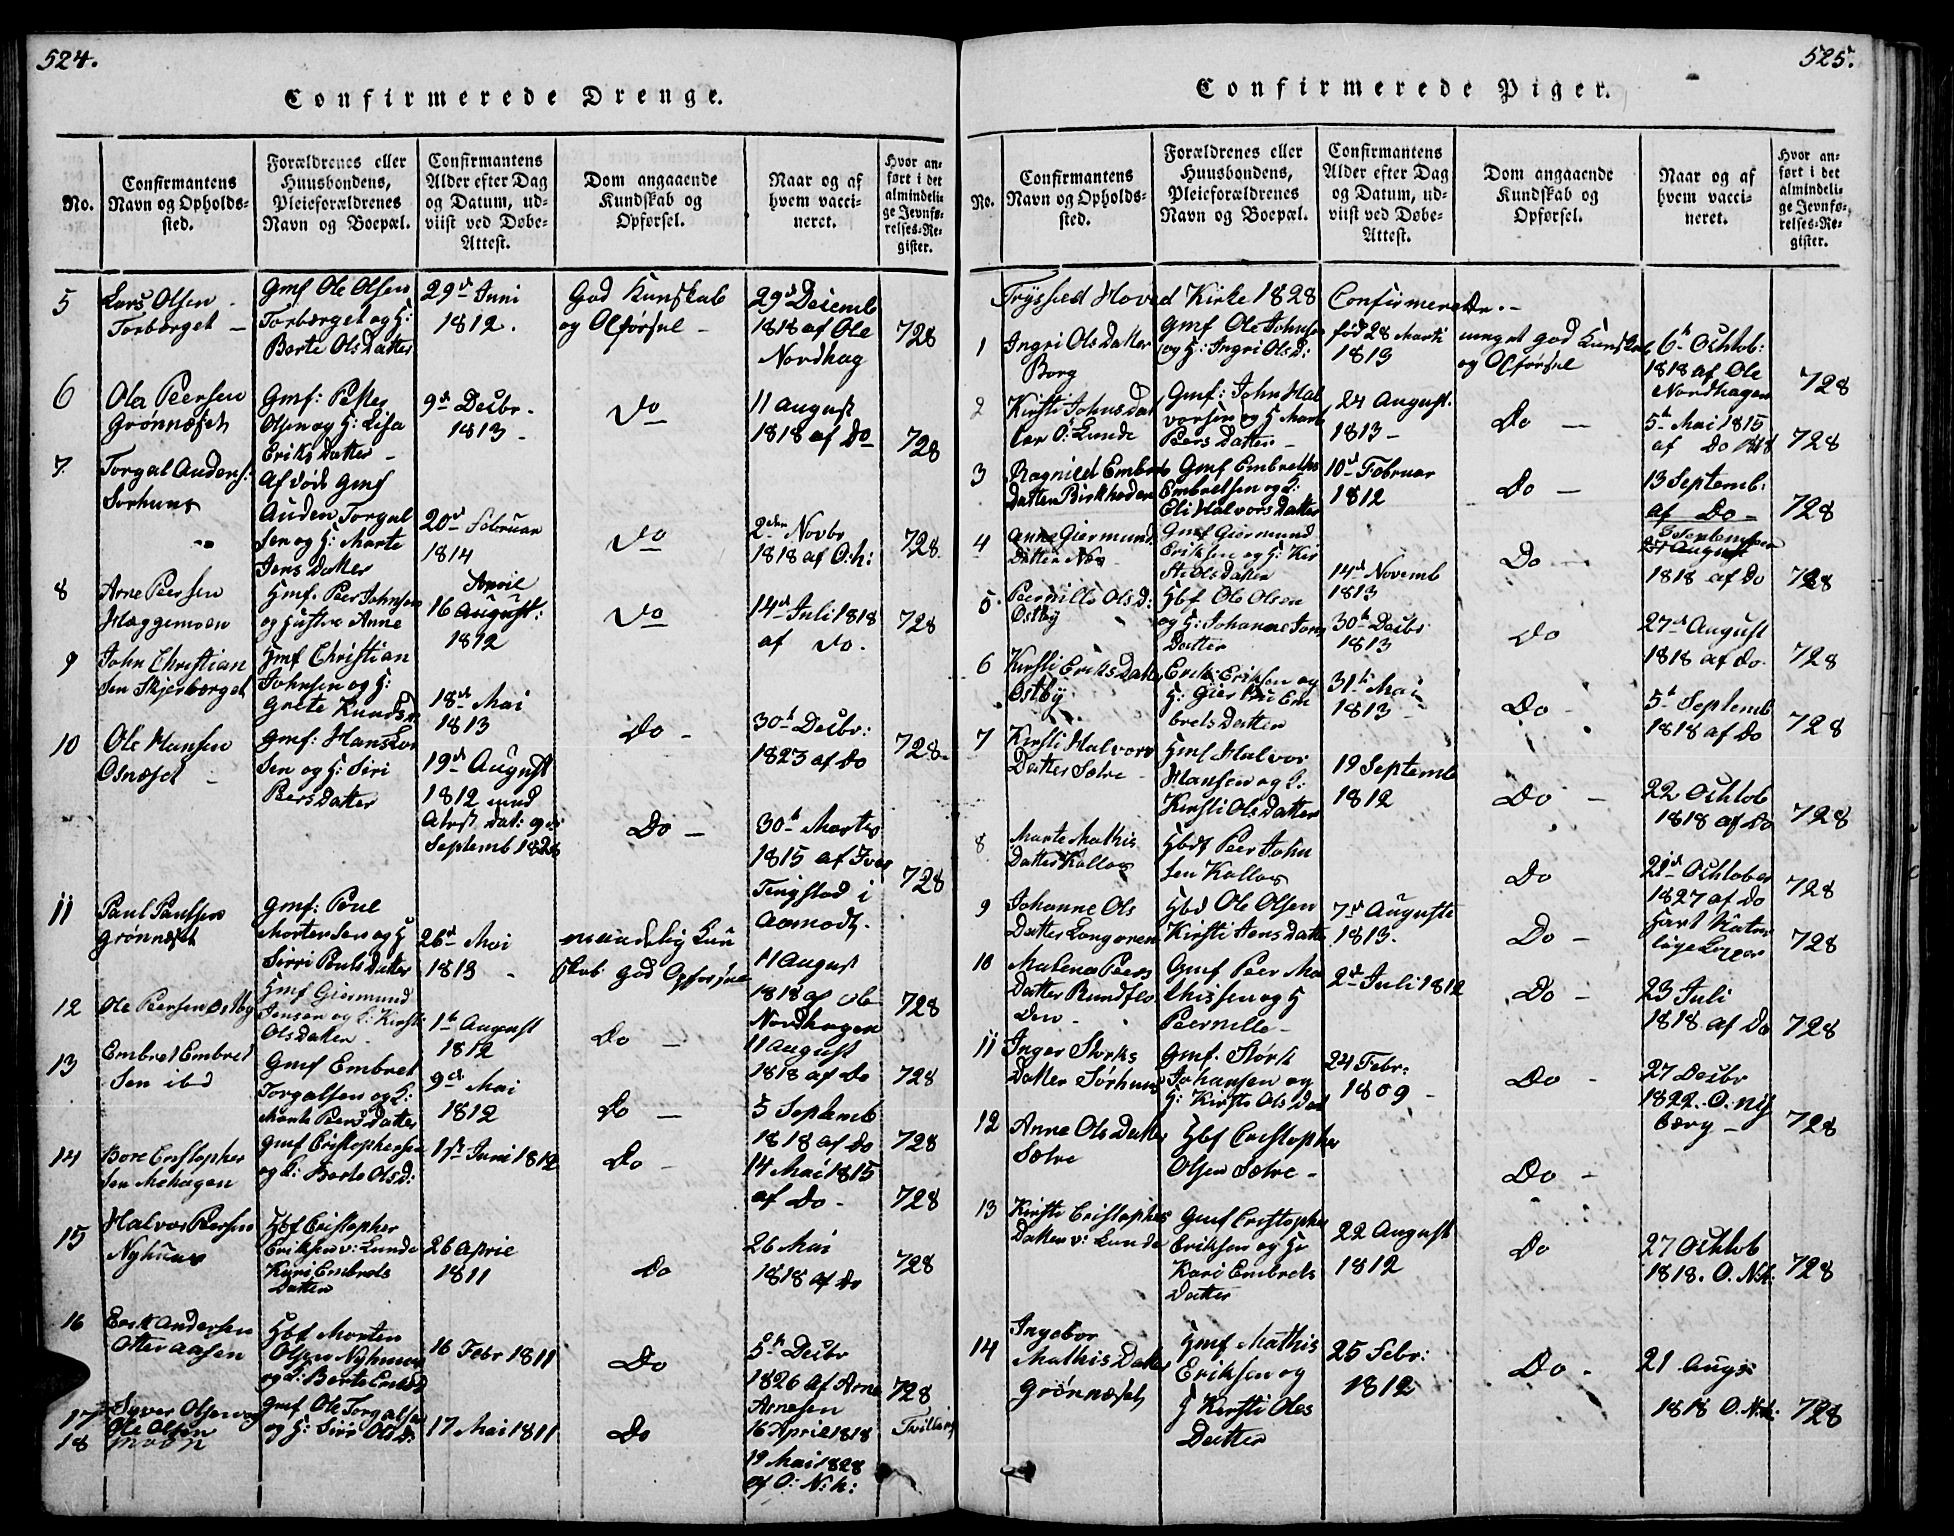 524.
Confirmerede Drenge.
No.
Confirmantens
Navn og Opholds-
sted.
Forældrenes eller
Huusbondens,
Pleieforældrenes
Navn og Boepæl.
Confirmantens
Alder efter Dag
og Datum, ud-
viist ved Døbe-
Attest.
Dom angaaende
Kundskab og
Opførsel.
Naar og af
hvem vacci-
neret.
Hvor an-
ført i det
almindeli-
ge Jevnfø-
relses-Re-
gister.
5
Lars Olsen
Torbærget
Gmf Ole Olsen
Torbærget og H:
Berte OlsDatter
29d Juni
1812.
God Kunskab
og Opførsel
29d Decemb
1818 af Ole
Nordhag
728
6
Ola Peersen
Grønnæset
Gmf: Petter
Olsen og H: Lisa
Eriks Datter
9d Decbr.
1813
Do
11 August
1818 af Do
728
7.
Torgal Anders:
Sørhuus
Afdøde Gmf
Auden Torgal
sen og H: Marte
Jens Datter
20d Februar
1814
Do
2den Novbr
1818 af O:h:
728
8
Arne Peersen
Hæggemoen
Hmf. Peer Johnsen
og Hustru Anne
April
16 August:
1812
Do
14d Juli 1818
af Do.
728
9
John Christian
sen Skjærbærget
Hmf Christian
Johnsen og H:
Grete Knudsd
18d Mai
1813
Do
30d Decbr:
1823 af Do
728
10
Ole Hansen
Osnæset
Gmf: Hans
sen og H: Siri
PersDatter
19d August
1812
Septemb 1828
Do
30d Martz
1815 af Iver
Tingstad i
Aamodt.
728
11
Paul Paulsen
Grønnæset
Gmf: Poul
Mortensen og H
Sirri Pouls Datter
26d Mai
1813
maadelig Kun
skab god Opførsel
11 August
1818 af Ole
Nordhagen
728
12
Ole Peersen Østby
Hmf Giermund
Jensen og H: Kirsti
OlsDatter
1d August
1812
Do
11 August
1818 af Do
728
13
Embret Embret
sen ibd
Gmf Embret
Torgalsen og H:
Marte PeersDatter
9d Mai
1812
Do
5 Septemb
1818 af Do
728
14
Bore Cristopher
sen Mehagen
Gmf Cristophersen
og H: Berte OlsD:
1ste Juni 1812
Do
14 Mai 1815
af Do
728
15
Halvor Peersen
Nyhuus
Hbf Cristopher
Eriksen v: Lunde
Kari Embrets
Datter
26 April
1811
Do
26 Mai
1818 af Do
728
16
Erik Andersen
Otteraasen
Hbf Morten
Olsen Nyhuus
og H: Berte
16 Febr 1811
Do
5d Decbr
1826 af Arne
Arnesen
728
17
18
Syver Olsen og
Ole Olsen
Moen
Gmf Ole Torgalsen
og H: Siri OlsD:
17 Mai 1811
Do
16 April 1818
19 Mai 1828
af O: N: h:
Tvilling
525.
Confirmerede Piger.
No.
Confirmantens
Navn og Opholds-
sted.
Forældrenes eller
Huusbondens,
Pleieforældrenes
Navn og Boepæl.
Confirmantens
Alder efter Dag
og Datum, ud-
viist ved Døbe-
Attest.
Dom angaaende
Kundskab og
Opførsel.
Naar og af
hvem vacci-
neret.
Hvor an-
ført i det
almindeli-
ge Jevnfø-
relses-Re-
gister.
Trysild Hoved Kirke 1828 Confirmerede.
1
Ingri OlsDatter
Borg
Gmf Ole Johnsen
og H: Ingri OlsD:
fød 28 Marti
1813
meget god Kunskab
og Opførsel
6d Octob:
1818 af Ole
Nordhagen
728
2
Kirsti JohnsDat
ter Ø: Lunde
Gmf: John Hal
vorsen og H Marte
PeersDatter
24 August.
1813
Do
5d Mai 1815
af Do
728
3
Ragnild Embrets
Datter Birkheden
Gmf Embret
Embretsen og H:
Eli HalvorsDatter
10d Februar
1812
Do
13 Septemb:
af Do
728
4
Anne Giermund
Datter Næs
Gmf Giermund
Eriksen og H: Kir
sti OlsDatter
14d Novemb
1813
Do
September
27 August
1818 af Do
728
5.
Peernille OlsD:
Østby
Hbf Ole Olsen
og H: Johanne Jons
Datter
30d Decbr
1813
Do
27d August
1818 af Do.
728
6
Kirsti EriksDatter
Østby
Erik Eriksen og
H: Giertru Em
bretsDatter
31d Mai
1813
Do
5d Septemb
1818 af Do
728
7
Kirsti Halvors
Datter Sætre
Hmf Halvor
Hansen og H:
Kirsti OlsDatter
19 Septemb
1812
Do
22 Octob
1818 af Do
728
8
Marte Mathis
Datter Kolloe
Hbdf Peer John
sen Kolloe
Do
21d October
1827 af Do
728
9
Johanne Ols
Datter
Hbd Ole Olsen
Kirsti JensDatter
7d Auguste
1813.
Do
havt Natur
lige
728
10
Malena Peers
Datter Rundflo
Den
Gmf Peer Ma
thissen og H
Peernille
2d Juli 1812
Do
23 Juli
1818 af Do
728
11
Inger Størks
Datter Sørhuus
Gmf. Størk
Johansen og
H: Kirsti OlsDat
24 Febr:
1809
Do
27 Decbr
1822. O. Ny
bærg
728
12
Anne OlsDatter
Sætre
Hbf Cristopher
Olsen Sætre
Do
13
Kirsti Cristophers
Datter v: Lunde
Gmf Cristopher
Eriksen og H:
Kari Embrets
Datter
22 August
1812
Do
27 Octob
1818. O. N.h:
728
14
Ingebor
MathisDatter
Grønnæset
Hmf Mathis
Eriksen og
H Kirsti Oles
Datter
25 Febr:
1812
Do
21 Augs
1818 O. N.h:
728